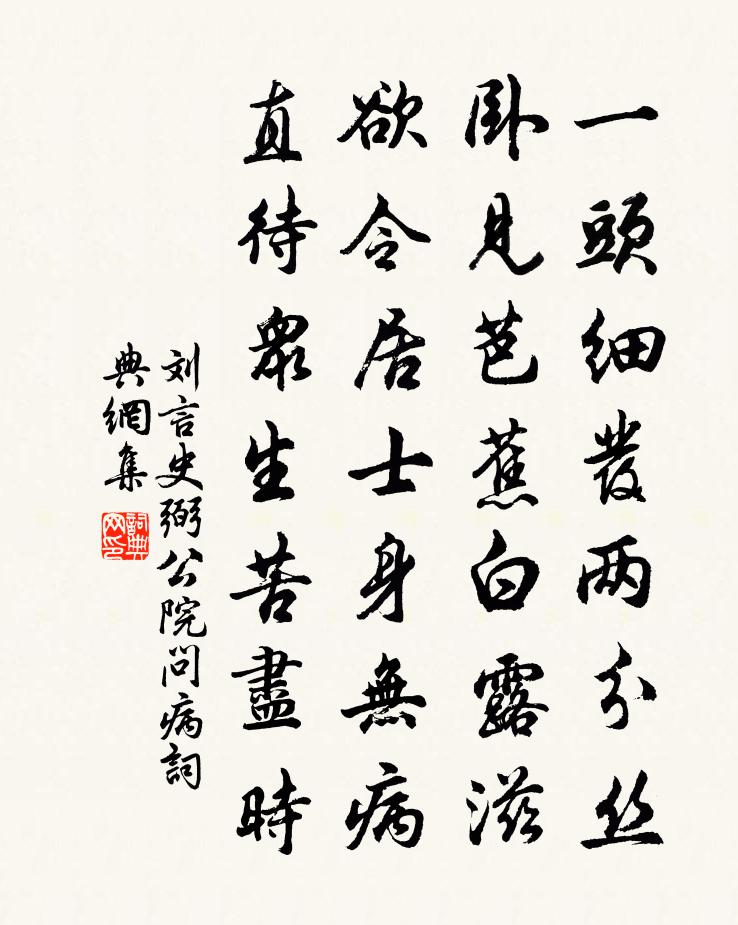 一頭細髮两分丝
卧見芭蕉白露滋
欲令居士身無病
直待衆生苦盡時
刘言史弼公院問病詞
典網集
詞典网印